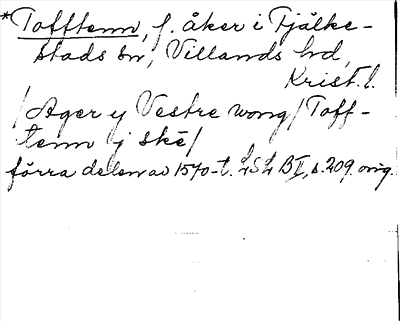 *Tofftenn, f. åker i Fjälke-
stads sn, Villands hd,
Krist. l.
/Ager y Vestre wong/ Toff-
tenn j skē/
förra delen av 1570-t. LSL BII, s. 209. orig.